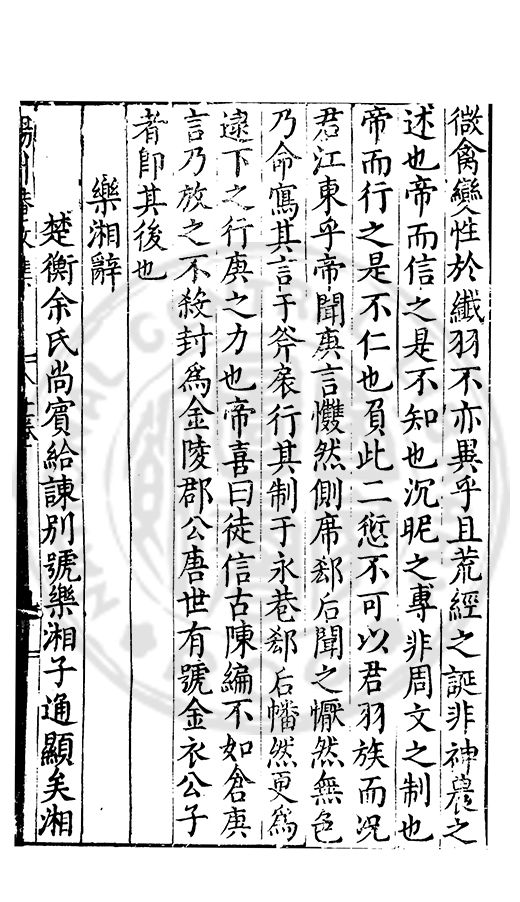 微禽變性於纖羽不亦異乎且荒經之誕非神農之
述也帝而信之是不知也沉昵之專非周文之制也
帝而行之是不仁也負此二愆不可以君羽族而況
君江東乎帝聞庚言戄然側席郄后聞之懨然無色
乃命寫其言于斧扆行其制于永巷郄后幡然更爲
逮下之行庚之力也帝喜曰徒信古陳編不如倉庚
言乃放之不殺封爲金陵郡公唐世有號金衣公子
者卽其後也
樂湘辭
楚衡余氏尚賓給諫別號樂湘子通顯矣湘